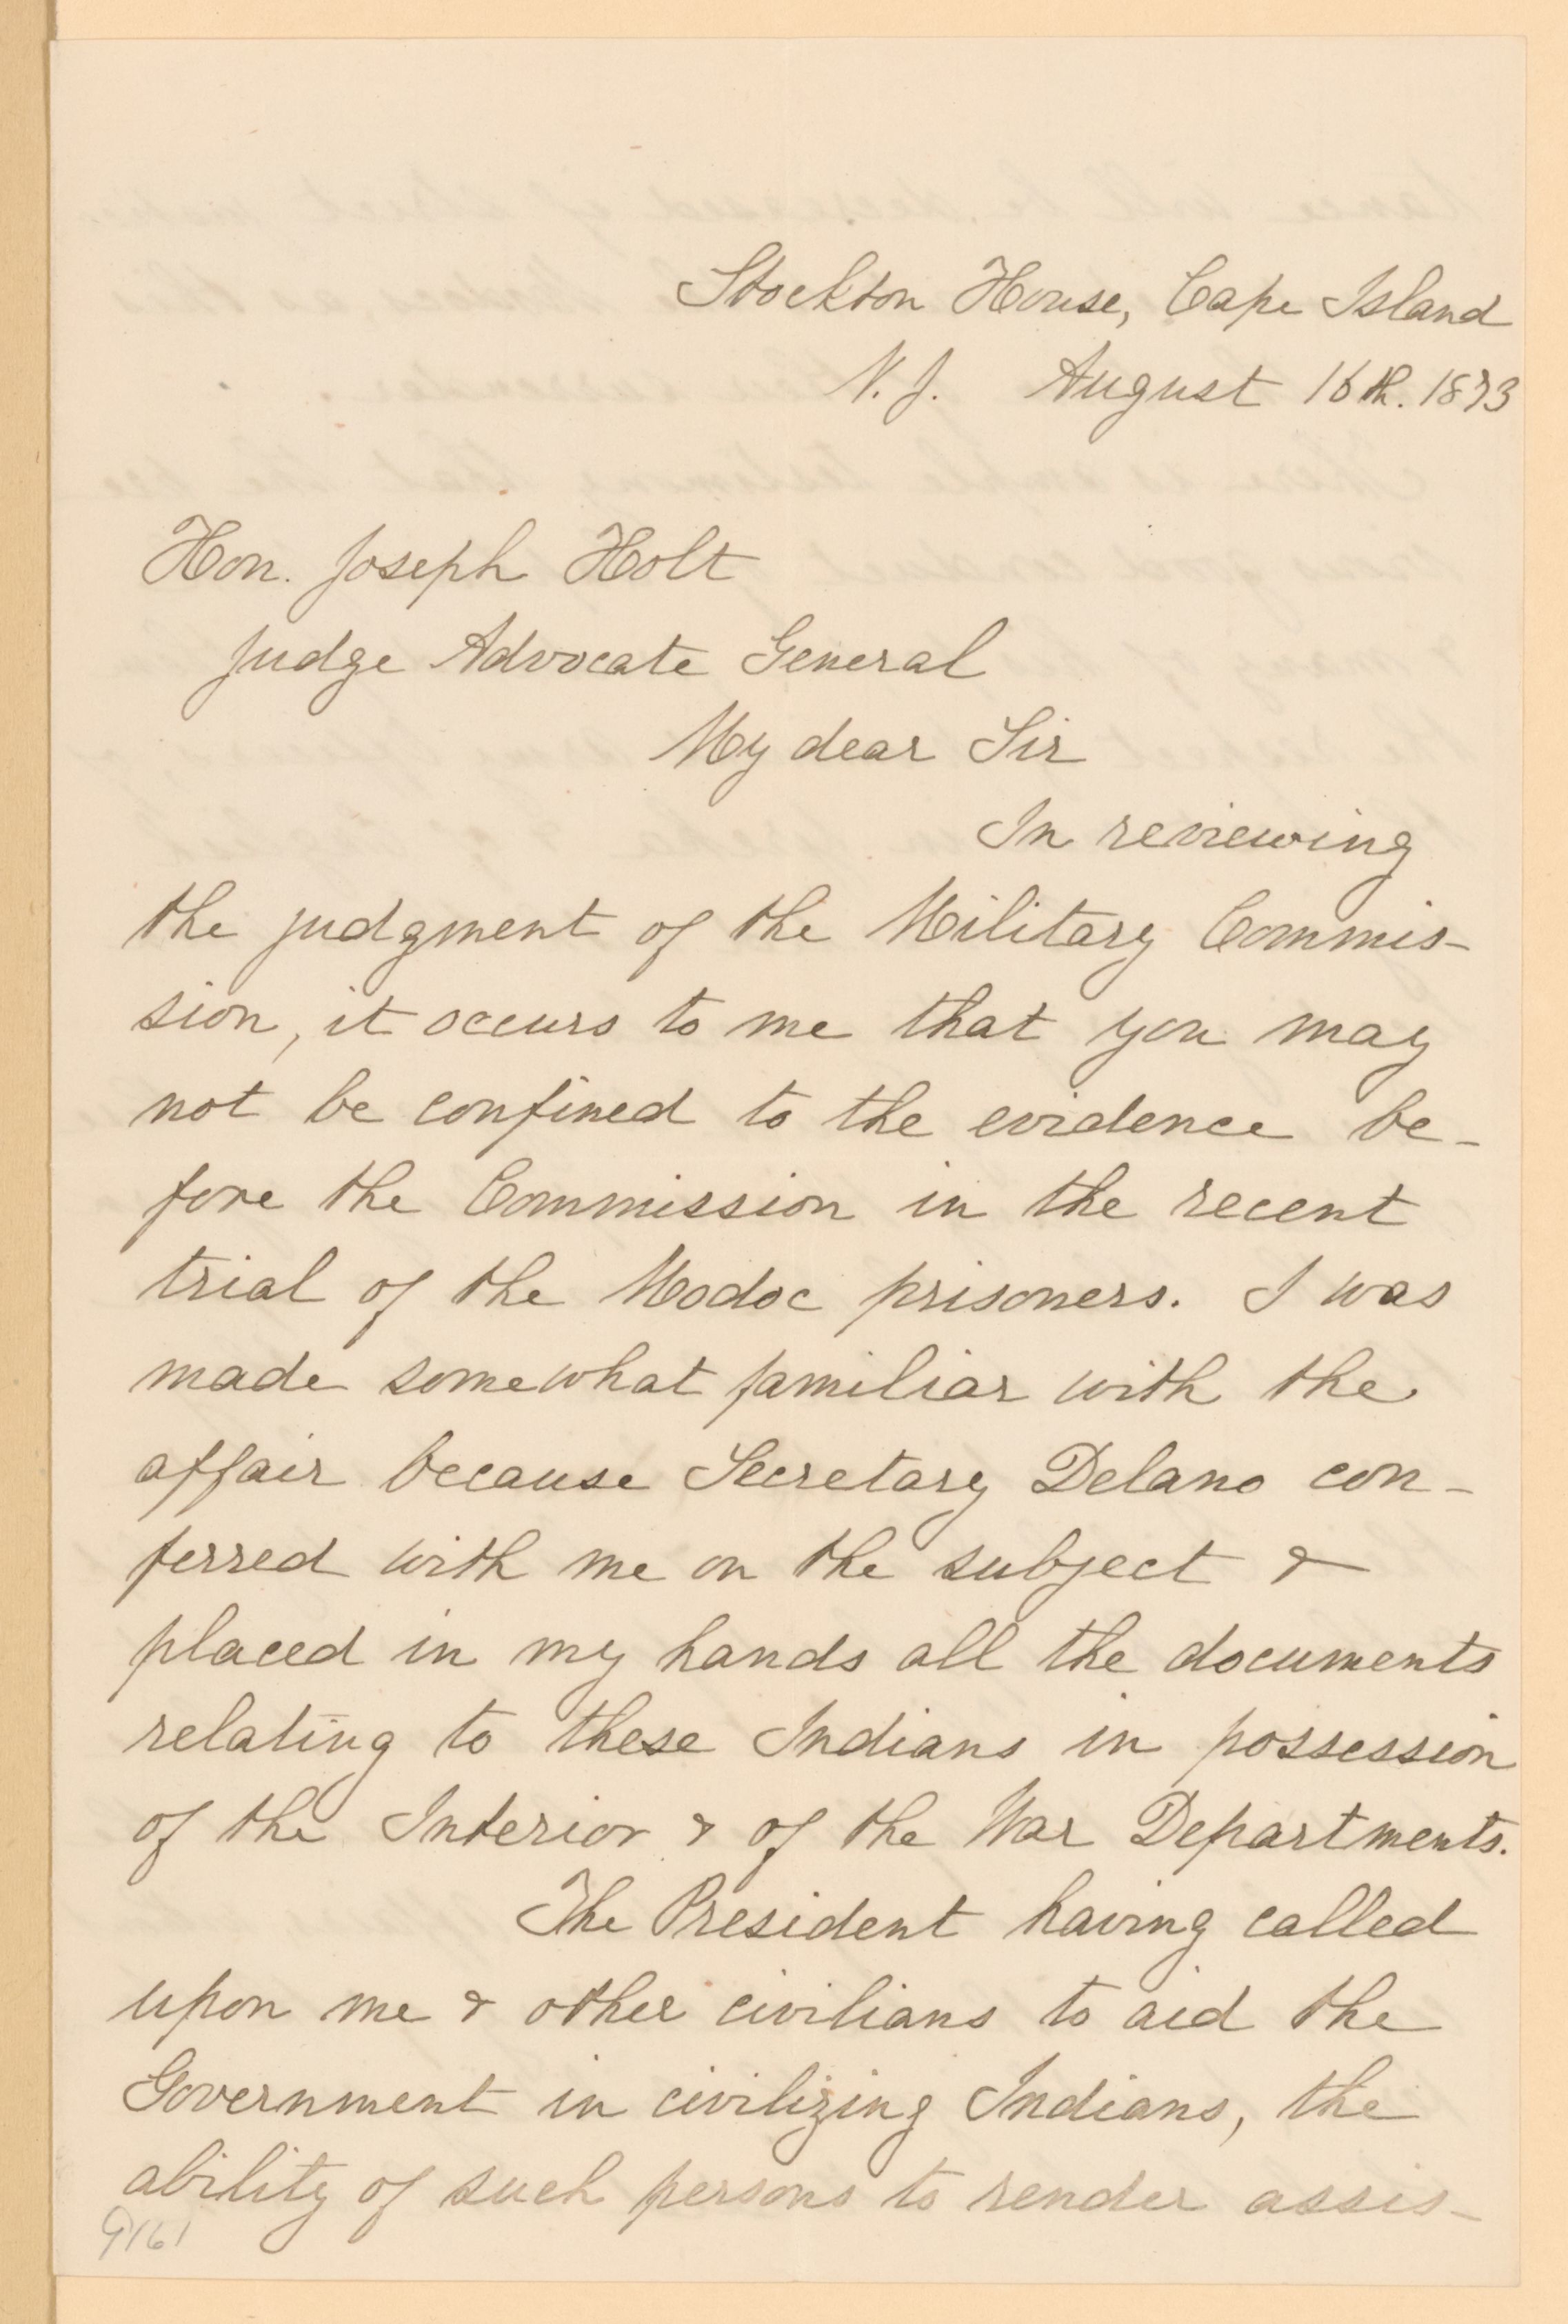 Stockton House, Cape Island
N. J. August 16th. 1873
Hon. Joseph Holt
Judge Advocate General
My dear Sir
In reviewing
the judgment of the Military Commis-
sion, it occurs to me that you may
not be confined to the evidence be-
fore the Commission in the recent
trial of the Modoc prisoners. I was
made somewhat familiar with the
affair because Secretary Delano con-
ferred with me on the subject &
placed in my hands all the documents
relating to these Indians in possession
of the Interior & of the War Departments.
The President having called
upon me & other civilians to aid the
Government in civilizing Indians, the
ability of such persons to render assis-
9161